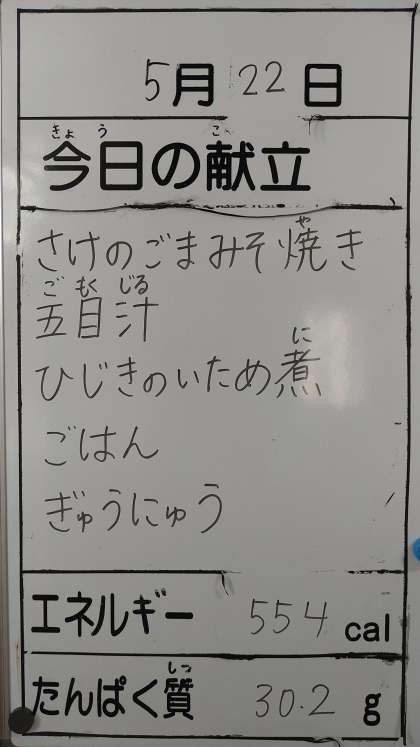 5月22日
きょう こん
今日の献立
や
さけのごまみそ焼き
ご もく じる
五目汁
に
ひじきのいため煮
ごはん
ぎゅうにゅう
エネルギー 554 cal
しつ
たんぱく質 30.2 g